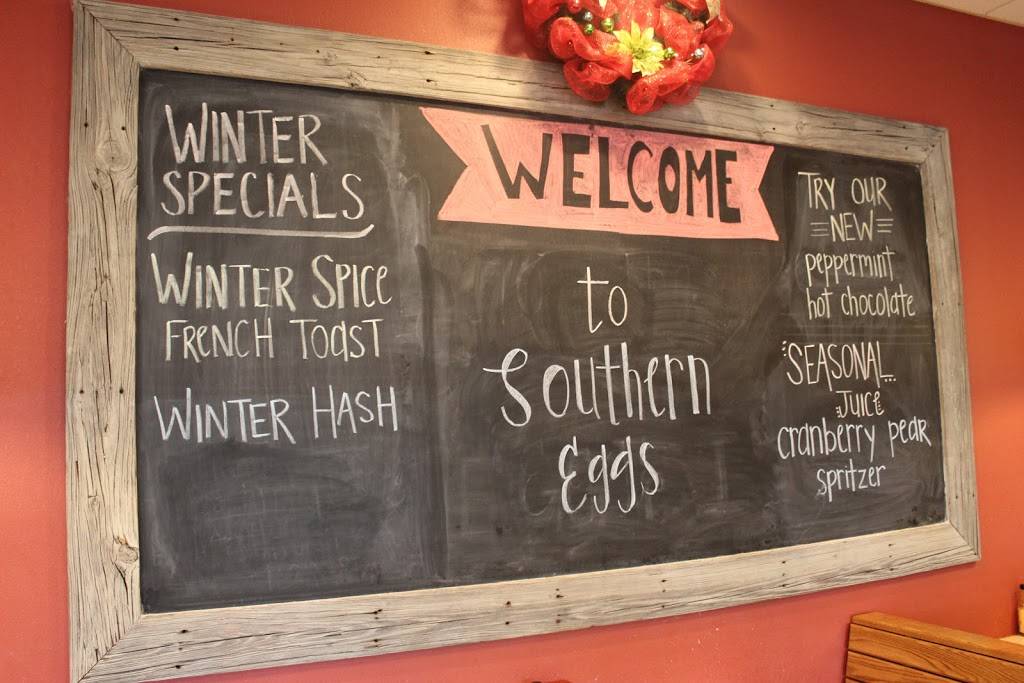 WINTER
SPECIALS
WINTER SPICE
FRENCH TOAST
WINTER HASH
WELCOME
to
Southern
Eggs
TRY OUR
=NEW=
peppermint
hot chocolate
SEASONAL...
JUICE
cranberry pear
spritzer